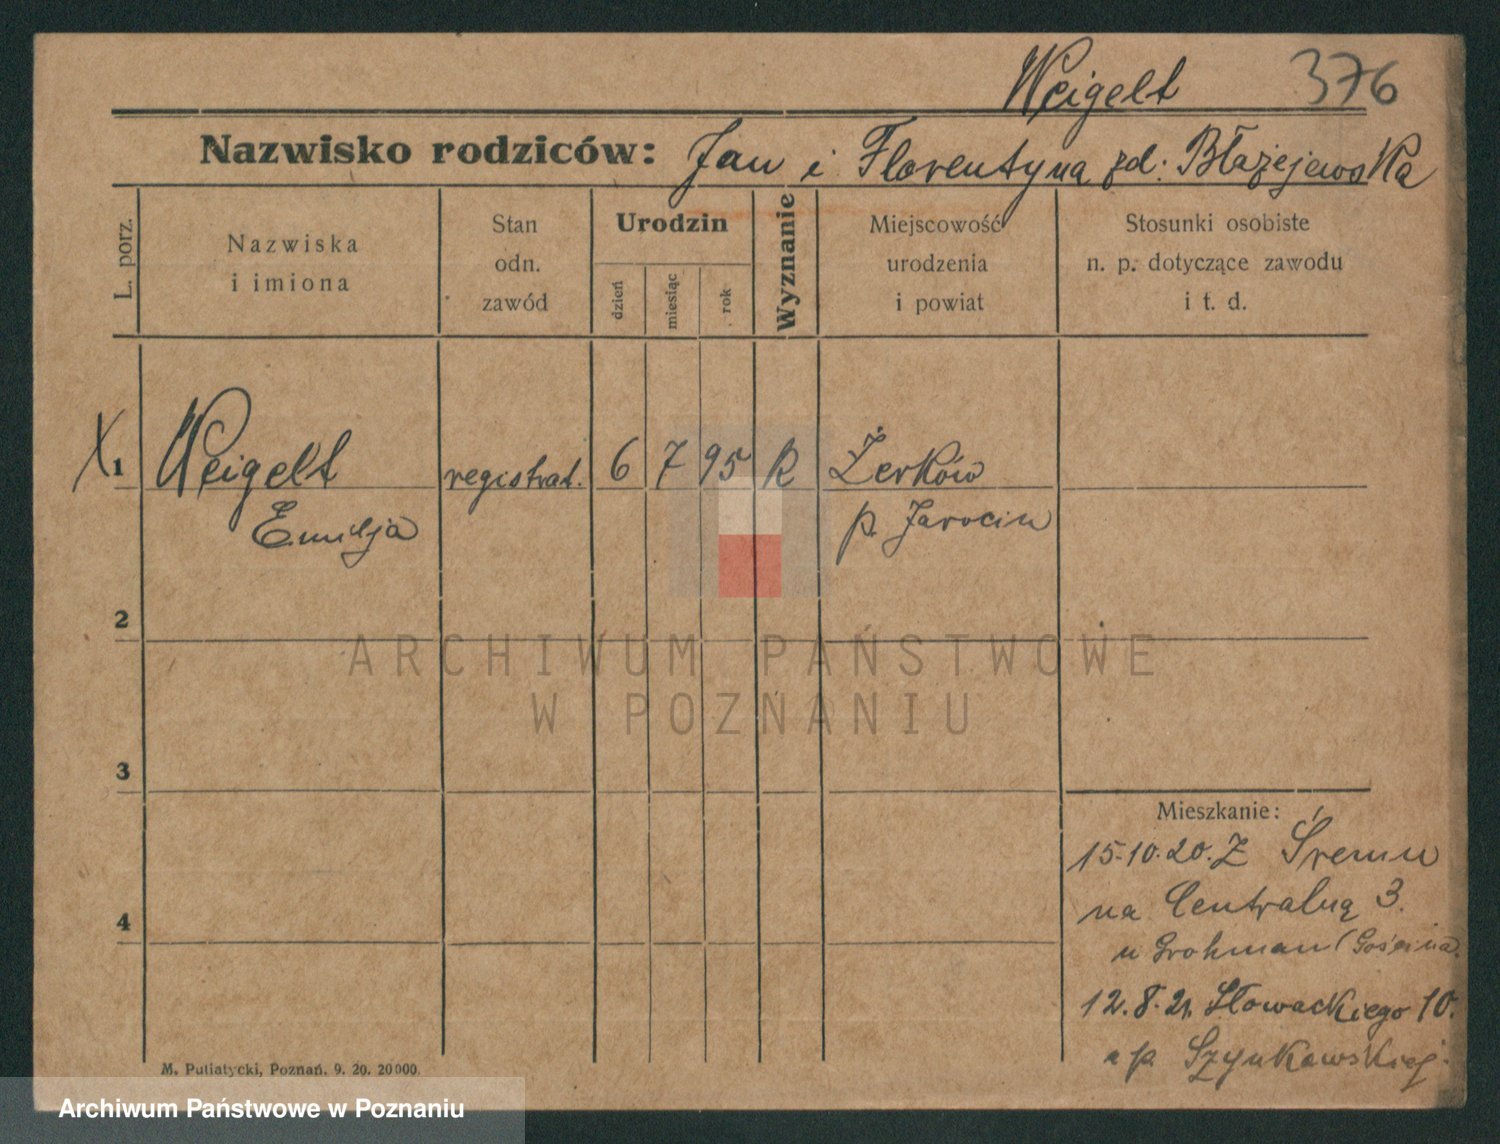 Weigelt 376
Nazwisko rodziców: Jan i Florentyna zd: Błażejewska
L. porz.
Nazwiska
i imiona
Stan
odn.
zawód
Urodzin
dzień
miesiąc
rok
Wyznanie
Miejscowość
urodzenia
i powiat
Stosunki osobiste
n. p. dotyczące zawodu
i t. d.
X 1 Weigelt registrat. 6 7 95 k Żerków
Emilja p. Jarocin
2
3
4
Mieszkanie:
15.10.20. Z Śremu
na Centralną 3.
u Grohman (Gościna)
12.8.21. Słowackiego 10.
u p. Szynkowskiej.
M. Putiatycki, Poznań. 9. 20. 20000.
ARCHIWUM PAŃSTWOWE
W POZNANIU
Archiwum Państwowe w Poznaniu